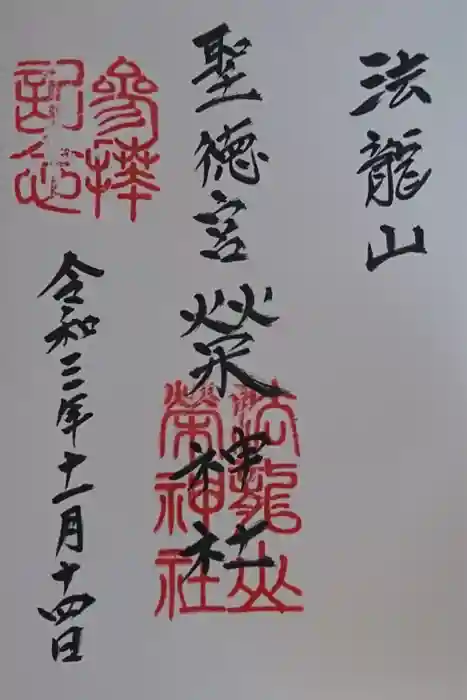 法龍山
聖徳宮
榮神社
法龍山
榮神社
參拝
記念
令和三年十一月十四日